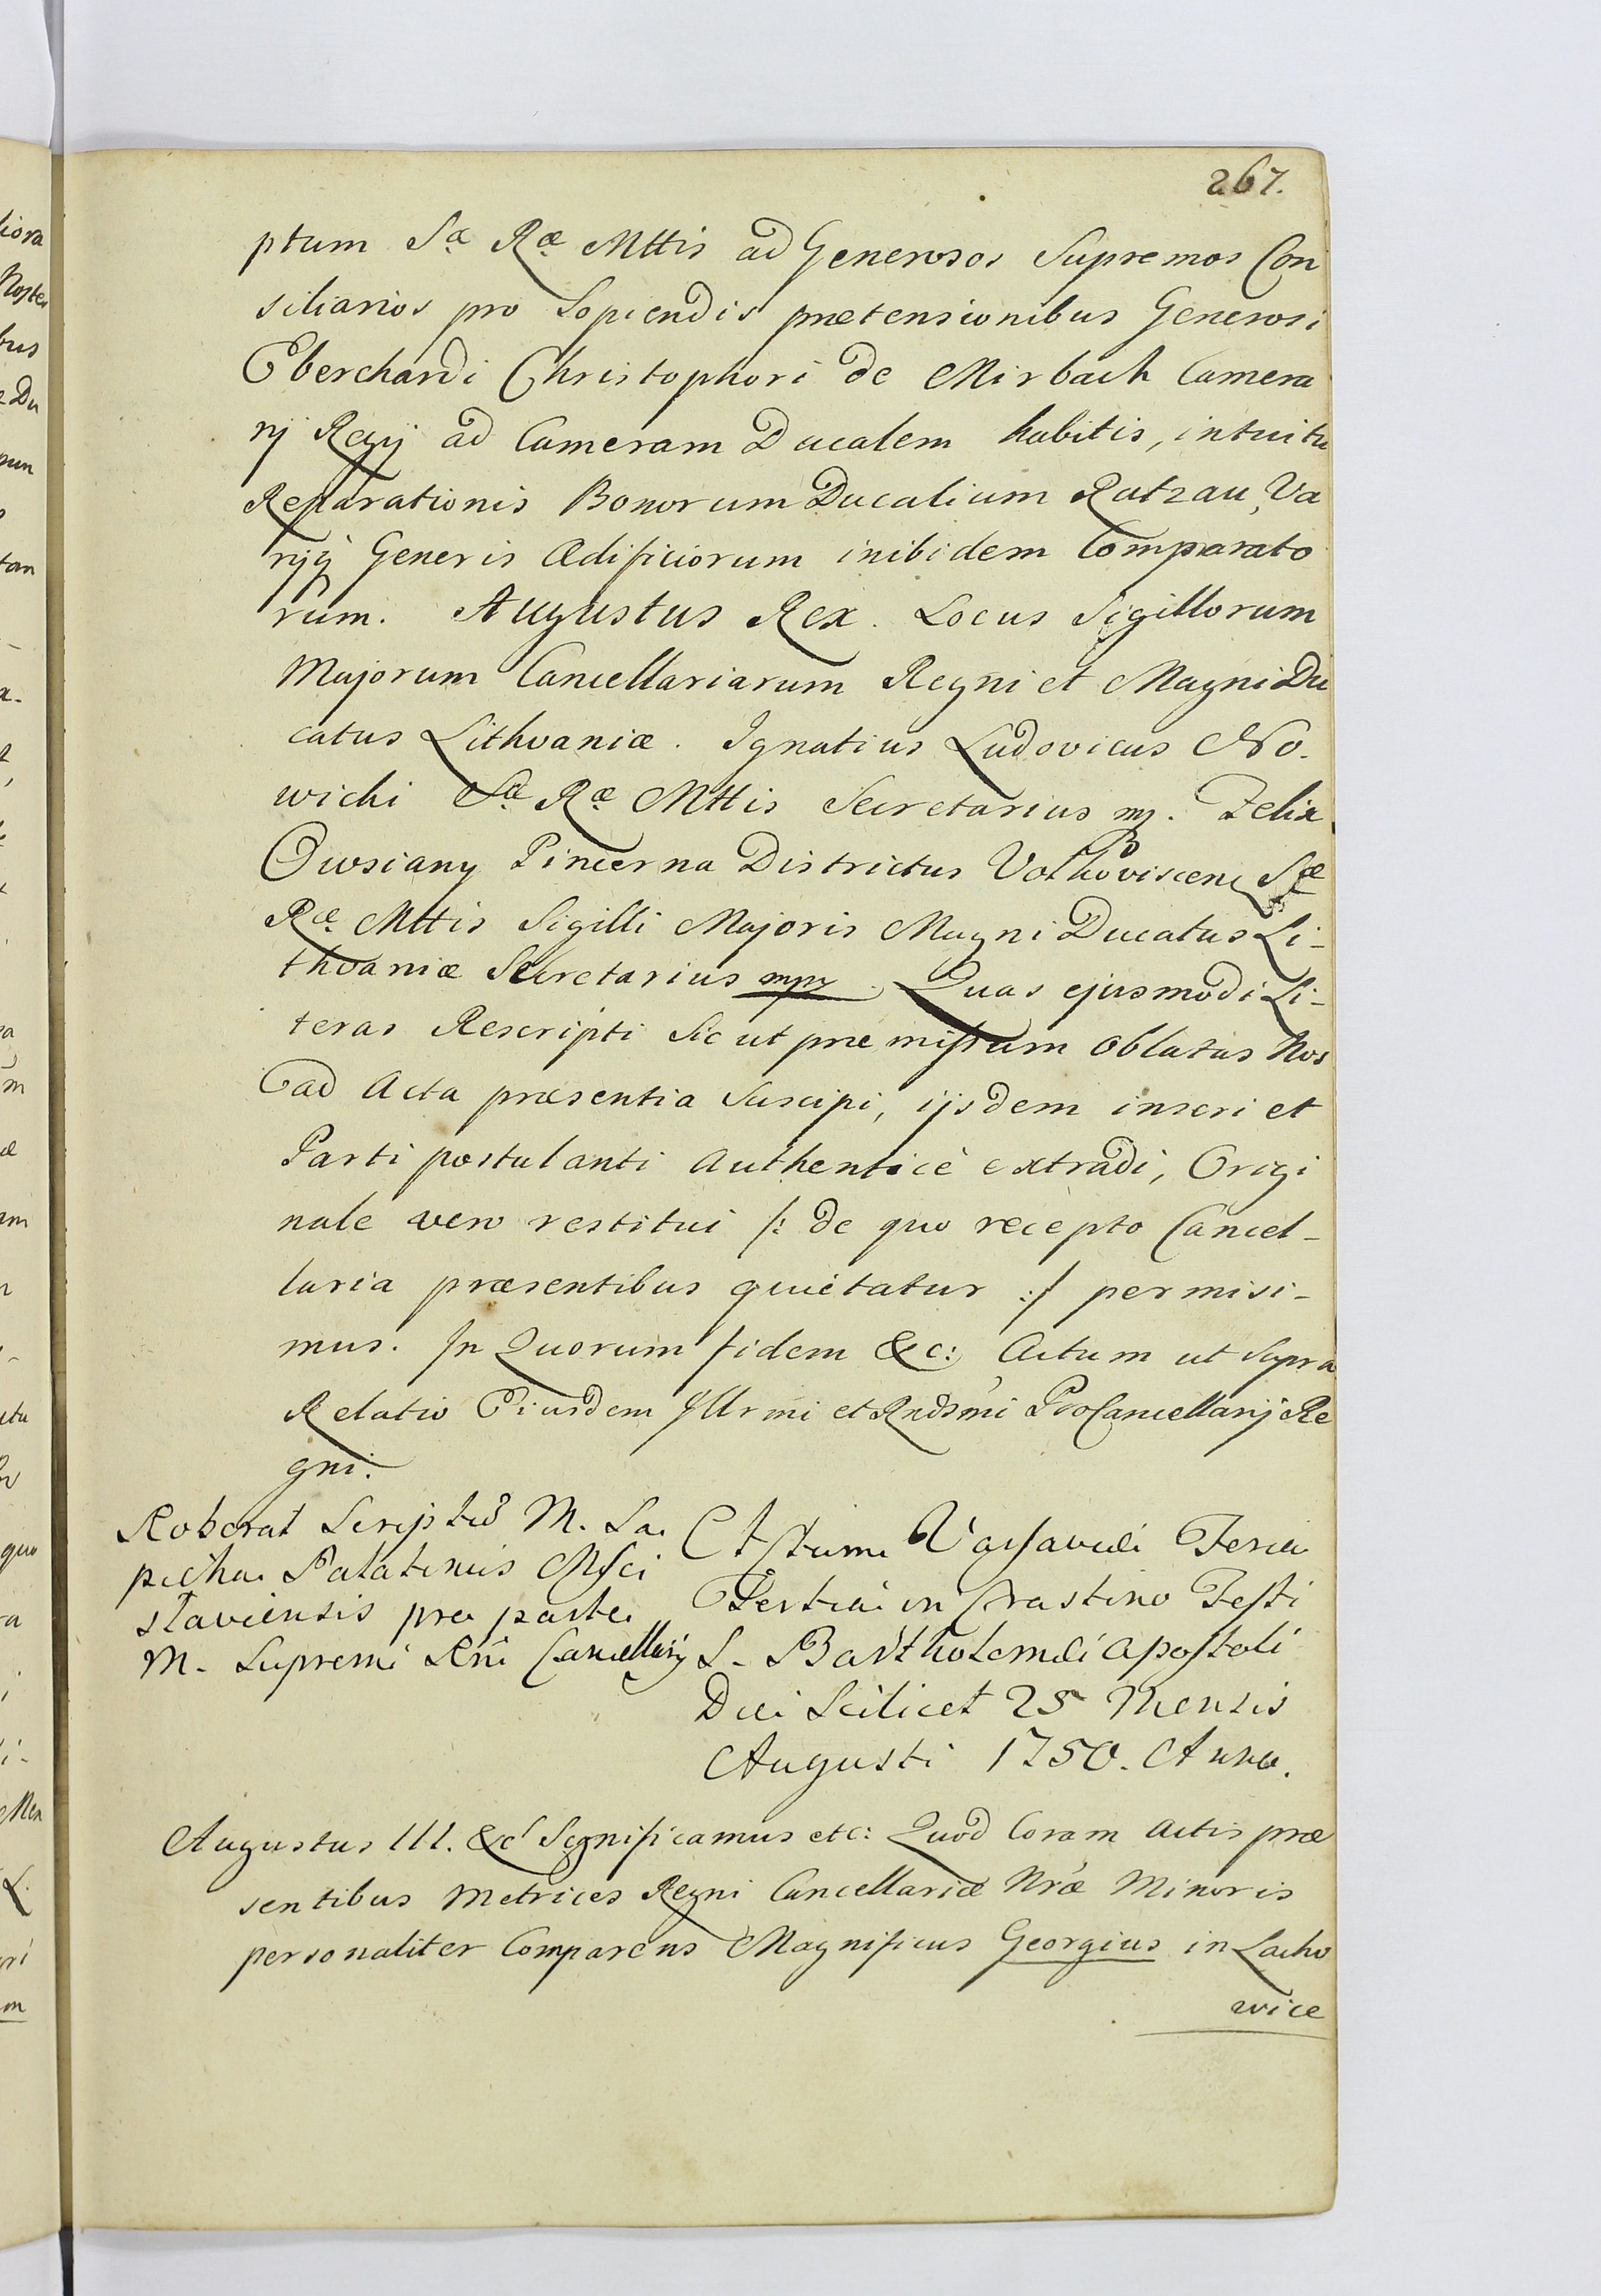 267.
ptum Sæ Ræ Mttis ad Generosos Supremos Con
siliarios pro Sopiendis prætensionibus Generosi
Eberchardi Christophori de Mirbach Camera
rij Regij ad Cameram Ducalem habitis, intuitu
Reparationis Bonorum Ducalium Rutzau, Va
rijq Generis Ædificiorum inibidem Comparato
rum. Augustus Rex. Locus Sigillorum
Majorum Cancellariarum Regni et Magni Du
catus Lithvaniæ. Ignatius Ludovicus No-
wicki Sæ Ræ Mttis Secretarius mp. Felix
Owsiany Pincerna Districtus Volkoviscen Sæ
Ræ Mttis Sigilli Majoris Magni Ducatus Li-
thvaniæ Secretarius mpr. Quas ejusmodi Li-
teras Rescripti Sic ut præmissum Oblatas Nos
ad Acta præsentia Suscipi, ijsdem inseri et
Parti postulanti Authenticè extradi, Origi
nale vero restitui /: de quo recepto Cancel-
laria præsentibus quietatur :/ permisi-
mus. In Quorum fidem &c: Actum ut Supra
Relatio Eiusdem Illrmi et Rndsmi ProCancellarij Re
gni.
Roborat Scriptus M. Sa
pieha Palatinus Msci
slaviensis pro parte
M. Supremi Rni Cancellarij
Actum Varsaviæ Feria
Tertia in Crastino Festi
S. Bartholomæi Apostoli
Die Scilicet 25 Mensis
Augusti 1750. Anno.
Augustus III. &c Significamus etc: Quod Coram Actis præ
sentibus Metrices Regni Cancellariæ Nræ Minoris
personaliter Comparens Magnificus Georgius in Lacho
wice